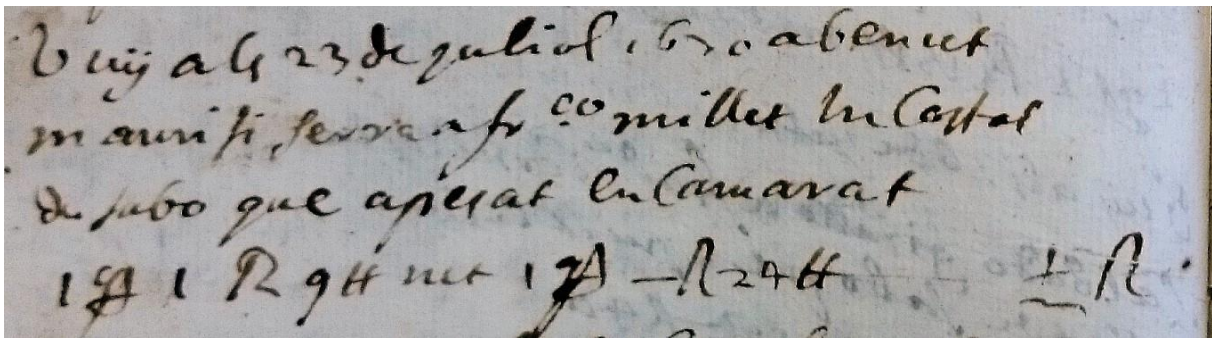 Vuy als 23 de juliol 1630 a benut
maurisi serra a fr co millet hu Costal
de sabo que apesat en Camarat
1 q 1 R 9 ♯ net 1 q — R 24 ♯ 1 R